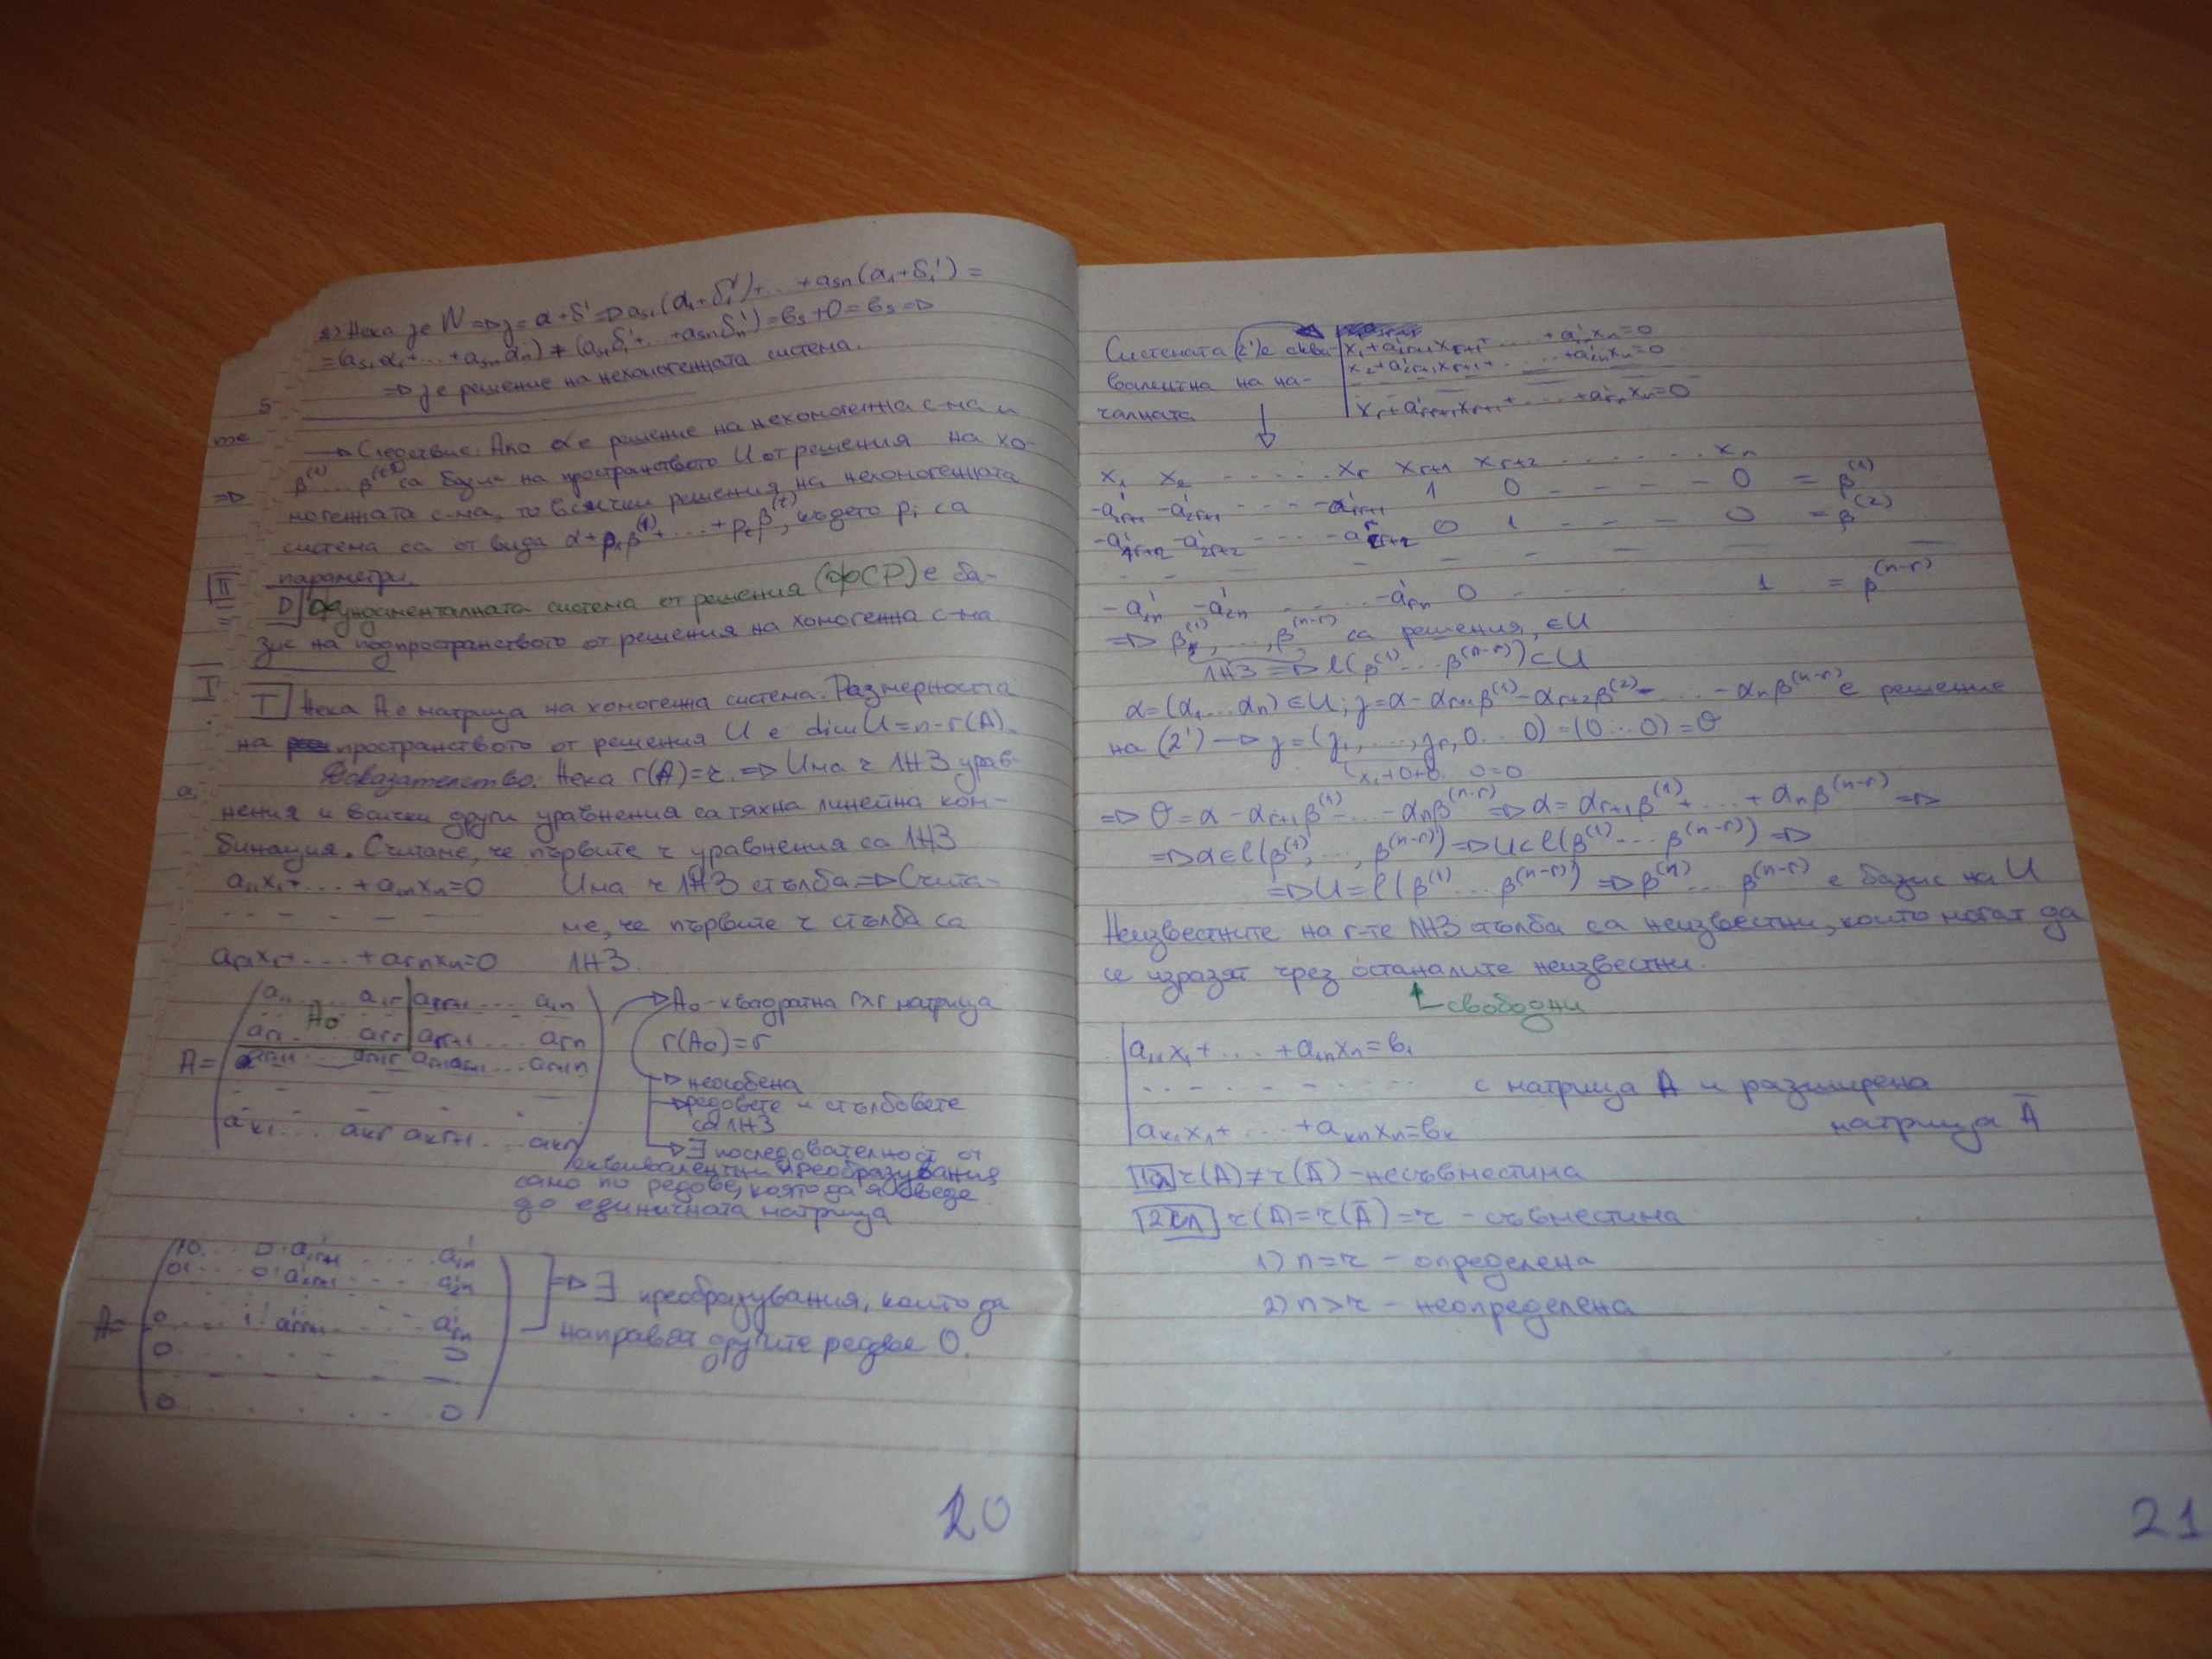 2) Нека γ∈W ⇒ γ=α+δ' ⇒ as1(α1+δ1')+...+asn(α1+δ1')=
=(as1α1+...+asnαn)+(as1δ1'+...+asnδn')=bs+0=bs ⇒
⇒ γ е решение на нехомогенната система.
→ Следствие: Ако α е решение на нехомогенна с-ма и
β(1)...β(t) са базис на пространството U от решения на хо-
могенната с-ма, то всички решения на нехомогенната
система са от вида α+p1β(1)+...+ptβ(t), където pi са
параметри.
II
D Фундаменталната система от решения (ФСР) е ба-
зис на подпространството от решения на хомогенна с-ма.
I
T Нека A е матрица на хомогенна система. Размерността
на пространството от решения U е dimU=n-r(A).
Доказателство: Нека r(A)=r. ⇒ Има r ЛНЗ урав-
нения и всички други уравнения са тяхна линейна ком-
бинация. Считаме, че първите r уравнения са ЛНЗ
a11x1+...+a1nxn=0 Има r ЛНЗ стълба ⇒ Счита-
- - - - - ме, че първите r стълба са
ar1x1+...+arnxn=0 ЛНЗ.
a11 ... a1r a1r+1 ... a1n → A0-квадратна r×r матрица
A0
ar1 ... arr arr+1 ... arn r(A0)=r
A= ar+11 ... ar+1r ar+1r+1 ... ar+1n
→ неособена
→ редовете и стълбовете
са ЛНЗ
ak1 ... akr akr+1 ... akn
→ ∃ последователност от
еквивалентни преобразувания
само по редове, която да я сведе
до единичната матрица
10 ... 0 a'1r+1 ... a'1n
01 ... 0 a'2r+1 ... a'2n ⇒ ∃ преобразувания, които да
A= 0 ... 1 a'rr+1 ... a'rn
направят другите редове 0.
0 ... 0
0 ... 0
20
Системата (2') е екви- x1+a'1r+1xr+1+...+a'1nxn=0
x2+a'2r+1xr+1+...+a'2nxn=0
валентна на на-
чалната xr+a'rr+1xr+1+...+a'rnxn=0
x1 x2 ..... xr xr+1 xr+2 ...... xn
-a'1r+1 -a'2r+1 ... -a'rr+1 1 0 - - - - 0 = β(1)
-a'1r+2 -a'2r+2 ... -a'rr+2 0 1 - - - 0 = β(2)
-a'1n -a'2n ... -a'rn 0 ... 1 = β(n-r)
⇒ β(1),...,β(n-r) са решения, ∈U
ЛНЗ ⇒ l(β(1)...β(n-r))⊂U
α=(α1...αn)∈U; γ=α-αr+1β(1)-αr+2β(2)-...-αnβ(n-r) е решение
на (2') → γ=(γ1,...,γr,0...0)=(0...0)=θ
x1+0+0...0=0
⇒ θ=α-αr+1β(1)-...-αnβ(n-r) ⇒ α=αr+1β(1)+...+αnβ(n-r) ⇒
⇒ α∈l(β(1),...,β(n-r)) ⇒ U⊂l(β(1)...β(n-r)) ⇒
⇒ U=l(β(1)...β(n-r)) ⇒ β(1)...β(n-r) е базис на U
Неизвестните на r-те ЛНЗ стълба са неизвестни, които могат да
се изразят чрез останалите неизвестни.
свободни
a11x1+...+a1nxn=b1
- - - - - - с матрица A и разширена
ak1x1+...+aknxn=bk матрица Ā
1сл r(A)≠r(Ā) - несъвместима
2сл r(A)=r(Ā)=r - съвместима
1) n=r - определена
2) n>r - неопределена
21